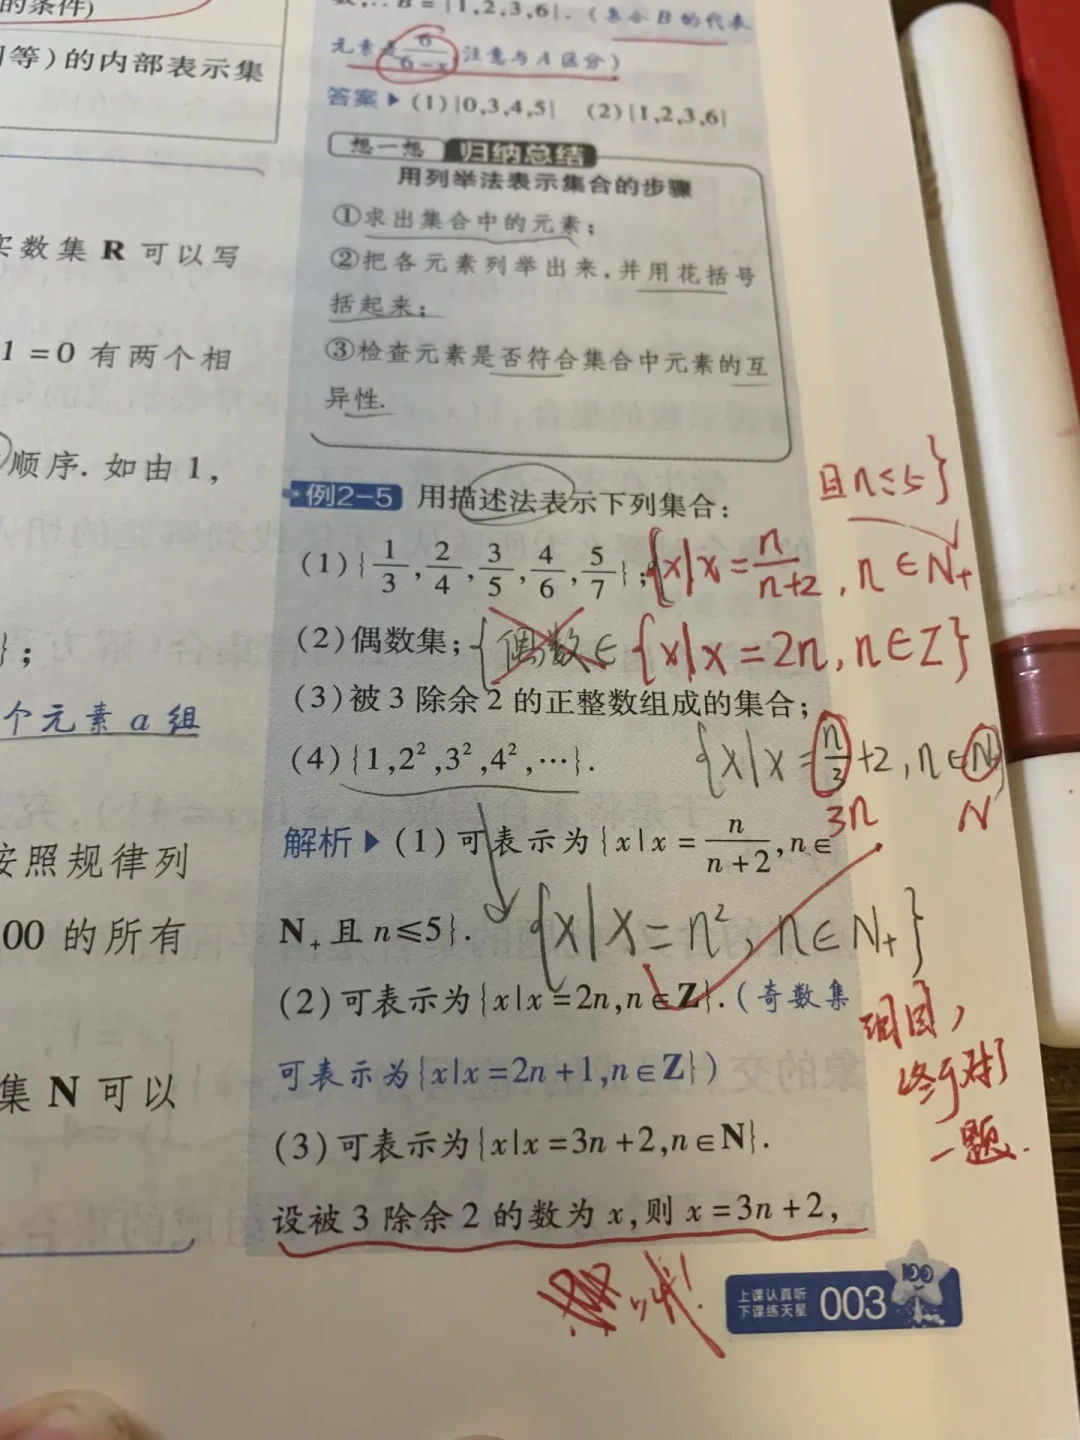 的条件)
等)的内部表示集
实数集 R 可以写
1=0 有两个相
顺序. 如由1,
};
个元素 a 组
按照规律列
00 的所有
集 N 可以
B={1,2,3,6}. (集合B的代表
元素是6/(6-x),注意与A区分)
答案▶(1){0,3,4,5} (2){1,2,3,6}
想一想 归纳总结
用列举法表示集合的步骤
①求出集合中的元素;
②把各元素列举出来,并用花括号
括起来;
③检查元素是否符合集合中元素的互
异性.
例2-5 用描述法表示下列集合:
且n≤5}
(1){1/3,2/4,3/5,4/6,5/7}; {x|x=n/(n+2), n∈N+
(2)偶数集; {偶数∈ {x|x=2n,n∈Z}
(3)被3除余2的正整数组成的集合;
(4){1,2²,3²,4²,…}. {x|x=n/3+2,n∈N+}
3n N
解析▶(1)可表示为{x|x=n/(n+2),n∈
N+且n≤5}. {x|x=n²,n∈N+}
(2)可表示为{x|x=2n,n∈Z}.(奇数集
可表示为{x|x=2n+1,n∈Z})
终于对了
一题.
(3)可表示为{x|x=3n+2,n∈N}.
设被3除余2的数为x,则x=3n+2,
上课认真听
下课练天星
003
100